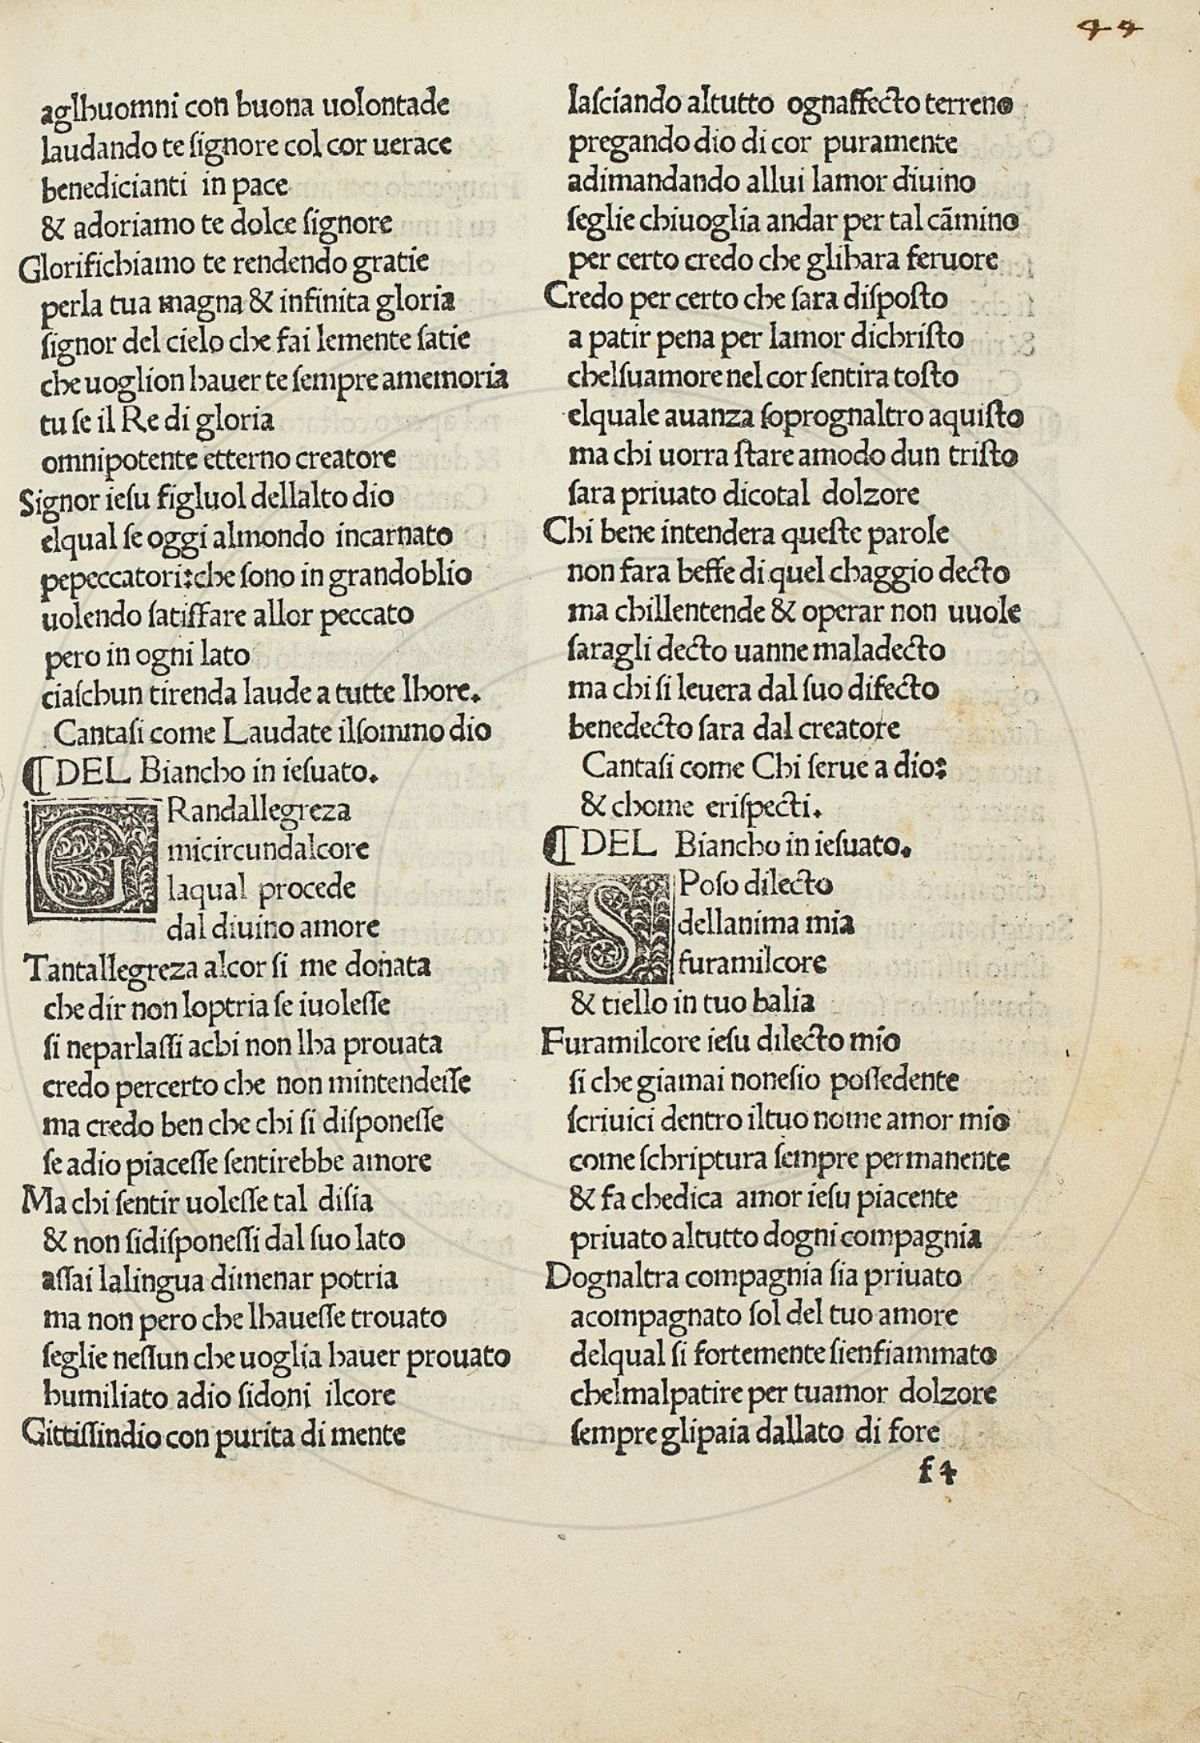 44
aglhuomni con buona uolontade
laudando te ſignore col cor uerace
benedicianti in pace
& adoriamo te dolce ſignore
Glorifichiamo te rendendo gratie
perla tua magna & infinita gloria
ſignor del cielo che fai lemente ſatie
che uoglion hauer te ſempre amemoria
tu ſe il Re di gloria
omnipotente etterno creatore
Signor ieſu figluol dellalto dio
elqual ſe oggi almondo incarnato
pepeccatori:che ſono in grandoblio
uolendo ſatiffare allor peccato
pero in ogni lato
ciaſchun tirenda laude a tutte lhore.
Cantaſi come Laudate ilſommo dio
¶DEL Biancho in ieſuato.
GRandallegreza
micircundalcore
laqual procede
dal diuino amore
Tantallegreza alcor ſi me donata
che dir non loptria ſe iuoleſſe
ſi neparlaſſi achi non lha prouata
credo percerto che non mintendeſſe
ma credo ben che chi ſi diſponeſſe
ſe adio piaceſſe ſentirebbe amore
Ma chi ſentir uoleſſe tal diſia
& non ſidiſponeſſi dal ſuo lato
aſſai lalingua dimenar potria
ma non pero che lhaueſſe trouato
ſeglie neſſun che uoglia hauer prouato
humiliato adio ſidoni ilcore
Gittiſſindio con purita di mente
laſciando altutto ognaffecto terreno
pregando dio di cor puramente
adimandando allui lamor diuino
ſeglie chiuoglia andar per tal cāmino
per certo credo che glihara feruore
Credo per certo che ſara diſpoſto
a patir pena per lamor dichriſto
chelſuamore nel cor ſentira toſto
elquale auanza ſoprognaltro aquiſto
ma chi uorra ſtare amodo dun triſto
ſara priuato dicotal dolzore
Chi bene intendera queſte parole
non fara beffe di quel chaggio decto
ma chillentende & operar non uuole
ſaragli decto uanne maladecto
ma chi ſi leuera dal ſuo difecto
benedecto ſara dal creatore
Cantaſi come Chi ſerue a dio:
& chome eriſpecti.
¶DEL Biancho in ieſuato.
SPoſo dilecto
dellanima mia
furamilcore
& tiello in tuo balia
Furamilcore ieſu dilecto mio
ſi che giamai noneſio poſſedente
ſcriuici dentro iltuo nome amor mio
come ſchriptura ſempre permanente
& fa chedica amor ieſu piacente
priuato altutto dogni compagnia
Dognaltra compagnia ſia priuato
acompagnato ſol del tuo amore
delqual ſi fortemente ſienfiammato
chelmalpatire per tuamor dolzore
ſempre glipaia dallato di fore
f4